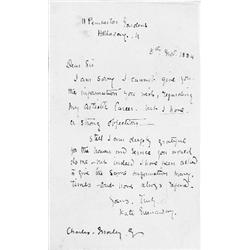 11 Pemberton Gardens
Holloway. N
8th Oct. 1884
Dear Sir
I am sorry I cannot give you
the information you seek, regarding
my Artistic Career. but I have
a strong objection.
Still I am deeply grateful
for the honour and service you would
do me and indeed I have been asked
to give the same information many
times and have always refused.
Yours. Truly
Kate Greenaway.
Charles. Morley Esq